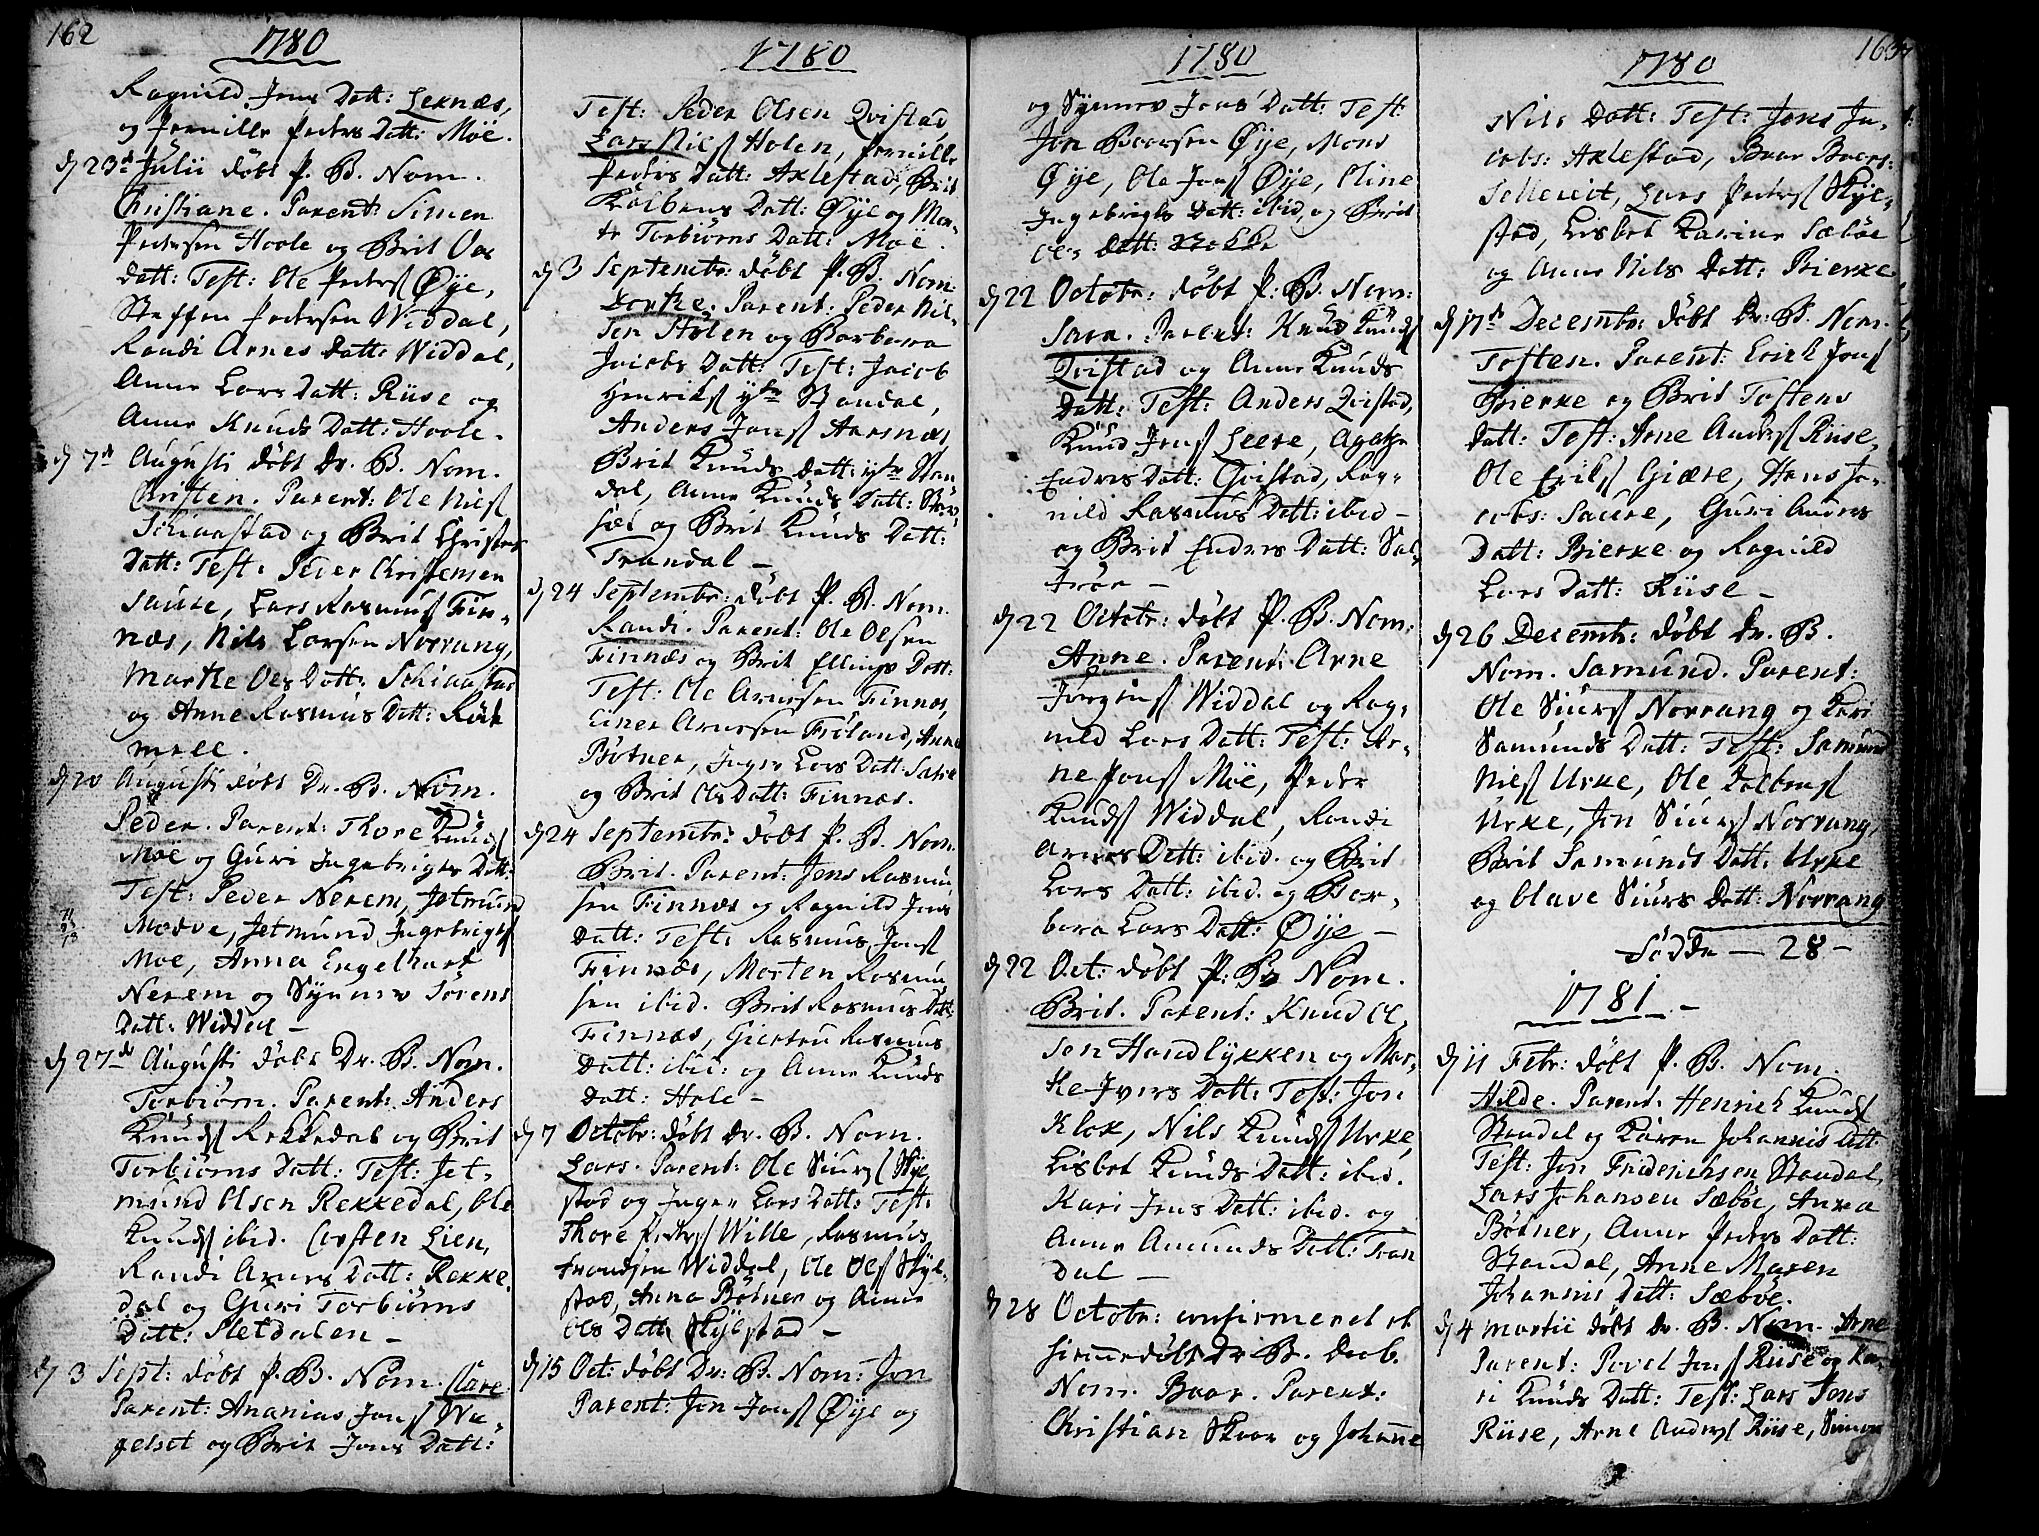 162
1780
Ragnild Jons Datt: Leknæs,
og Pernille Peders Datt: Moe.
d 23de Julii döbt P. B. Nom.
Christiane. Parent: Simen
Pedersen Hoole og Brit Oles
Datt: Test: Ole Peders Øye,
Steffen Pedersen Widdal,
Randi Arnes Datt: Widdal,
Anne Lars Datt: Riise og
Anne Knuds Datt: Hoole.
d 7de Augusti döbt Dr. B. Nom.
Christen. Parent: Ole Niels
Schiaastad og Brit Christens
Datt: Test: Peder Christensen
Saure, Lars Rasmus Fin-
næs, Nils Larsen Norrang,
Marthe Oles Datt: Schiaastad
og Anne Rasmus Datt: Röt
mell.
d 20 Augusti döbt Dr. B. Nom.
Peder. Parent: Thore Knuds
Moe og Guri Ingebrigts Datt:
Test: Peder Nerem, Jetmund
Modve, Jetmund Ingebrigts
Moe, Anna Engelhart
Nerem og Synnev Sörens
Datt: Widdal —
d 27de Augusti döbt Dr. B. Nom.
Torbiörn. Parent: Anders
Knuds Rekkedal og Brit
Torbiörns Datt: Test: Jet-
mund Olsen Rekkedal, Ole
Knuds ibid. Carsten Lien,
Randi Arnes Datt: Rekke
dal og Guri Torbiörns
Datt: Sletdalen —
d 3 Sept: döbt P. B. Nom.
Parent: Ananias Jons Wa-
gelset og Brit Jons Datt:
1780
Test: Peder Olsen Qvistad
Lars Niels Holen, Pernille
Peders Datt: Axlestad, Brit
Kolbens Datt: Øye og Mar-
te Torbiörns Datt: Moe.
d 3 Septembr: döbt P. B. Nom:
Dorthe. Parent: Peder Nil-
sen Holen og Barbara
Jacobs Datt: Test: Jacob
Henriks ytr Standal,
Anders Jons Aarsnæs,
Brit Knuds Datt: ytr Stan
dal, Anne Knuds Datt:
sæt og Brit Knuds Datt:
Trandal —
d 24 Septembr: döbt P. B. Nom.
Randi. Parent: Ole Olsen
Finnæs og Brit Ellings Datt:
Test: Ole Arnesen Finnæs,
Einer Arnesen Fröland, Anna
Bötner, Inger Lars Datt: Satre
og Brit Ols Datt: Finnæs.
d 24 Septembr: döbt P. B. Nom.
Brit. Parent: Jens Rasmu
sen Finnæs og Ragnild Jons
Datt: Test: Rasmus Jons
Finnæs, Morten Rasmu
sen ibid. Brit Rasmus Datt:
Finnæs, Giertru Rasmus
Datt: ibid: og Anne Knuds
Datt: Hole —
d 7 Octobr: döbt Dr. B. Nom.
Lars. Parent: Ole Siurs Skyl
stad og Inger Lars Datt: Test:
Thore Peders Wille, Rasmus
Frandsen Widdal, Ole Ols Skyl-
stad, Anna Bötner og Anne
Ols Datt: Skylstad —
d 15 Oct: döbt Dr: B. Nom: Jon
Parent: Jon Jons Øye og
1780
og Synnev Jons Datt: Test:
Jon Baarsen Øye, Mons
Øye, Ole Jons Øye, Oline
Ingebrigts Datt: ibid, og Brit
Oles Datt:
d 22 Octobr: döbt P: B. Nom:
Sara. Parent: Knud Knuds
Qvistad og Anne Knuds
Datt: Test: Anders Qvistad,
Knud Jens Leere, Agathe
Endres Datt: Qvistad, Rag-
nild Rasmus Datt: ibid —
og Brit Endres Datt: Sal-
tröe —
d 22 Octobr: döbt P. B. Nom:
Anne. Parent: Arne
Jörgens Widdal og Rag-
nild Lars Datt: Test: Ar-
ne Jons Moe, Peder
Knuds Widdal, Randi
Arnes Datt: ibid. og Brit
Lars Datt: ibid. og Bar-
bara Lars Datt: Øye —
d 22 Oct: döbt P. B. Nom.
Brit. Parent: Knud Ol
sen Handlykken og Mar-
the Ivers Datt: Test: Jon
Klok, Nils Knuds Urke,
Lisbet Knuds Datt: ibid.
Kari Jens Datt: ibid. og
Anne Amunds Datt: Tran
dal —
d 28 Octobr: confirmeret et
hiemedöbt Dr B. Drb.
Nom. Baar. Parent:
Christian Skaar og Johanne
163
1780
Nils Datt: Test: Jens Ja-
cobs: Axlestad, Baar Baars:
Tellereit, Lars Peders Skyl-
stad, Lisbet Karine Sæböe
og Anne Nils Datt: Bierke
d 17de Decembr: döbt Dr: B. Nom.
Tosten. Parent: Erich Jons
Bierke og Brit Tostens
Datt: Test: Arne Anders Riise,
Ole Eriks Giære, Hans Ja-
cobs: Saure, Guri Andres
Datt: Bierke og Ragnild
Lars Datt: Riise —
d 26 Decembr: döbt Dr. B.
Nom. Samund. Parent:
Ole Siurs Norrang og Kari
Samunds Datt: Test: Samund
Niels Urke, Ole Kolbens
Urke, Jon Siurs Norrang,
Brit Samunds Datt: Urke
og Olave Siurs Datt: Norrang
Födde — 28 —
1781 —
d 11 Febr: döbt P. B. Nom.
Hilde. Parent: Henrich Knuds
Standal og Karen Johannis Datt:
Test: Jon Friderichsen Standal,
Lars Johansen Sæböe, Anna
Bötner, Anne Peders Datt:
Standal, Anne Maren
Johannis Datt: Sæböe.
d 4 Martii döbt Dr. B. Nom. Arne
Parent: Povel Jons Riise og Ka-
ri Knuds Datt: Test: Lars Jons
Riise, Arne Anders Riise, Simon